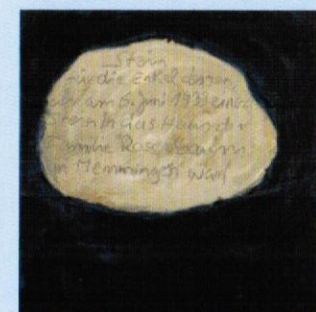 Stein
für die Enkel dessen,
der am 6. Juni 19 einen
Stein in das Haus der
Familie Rosenbaum
in Memmingen warf